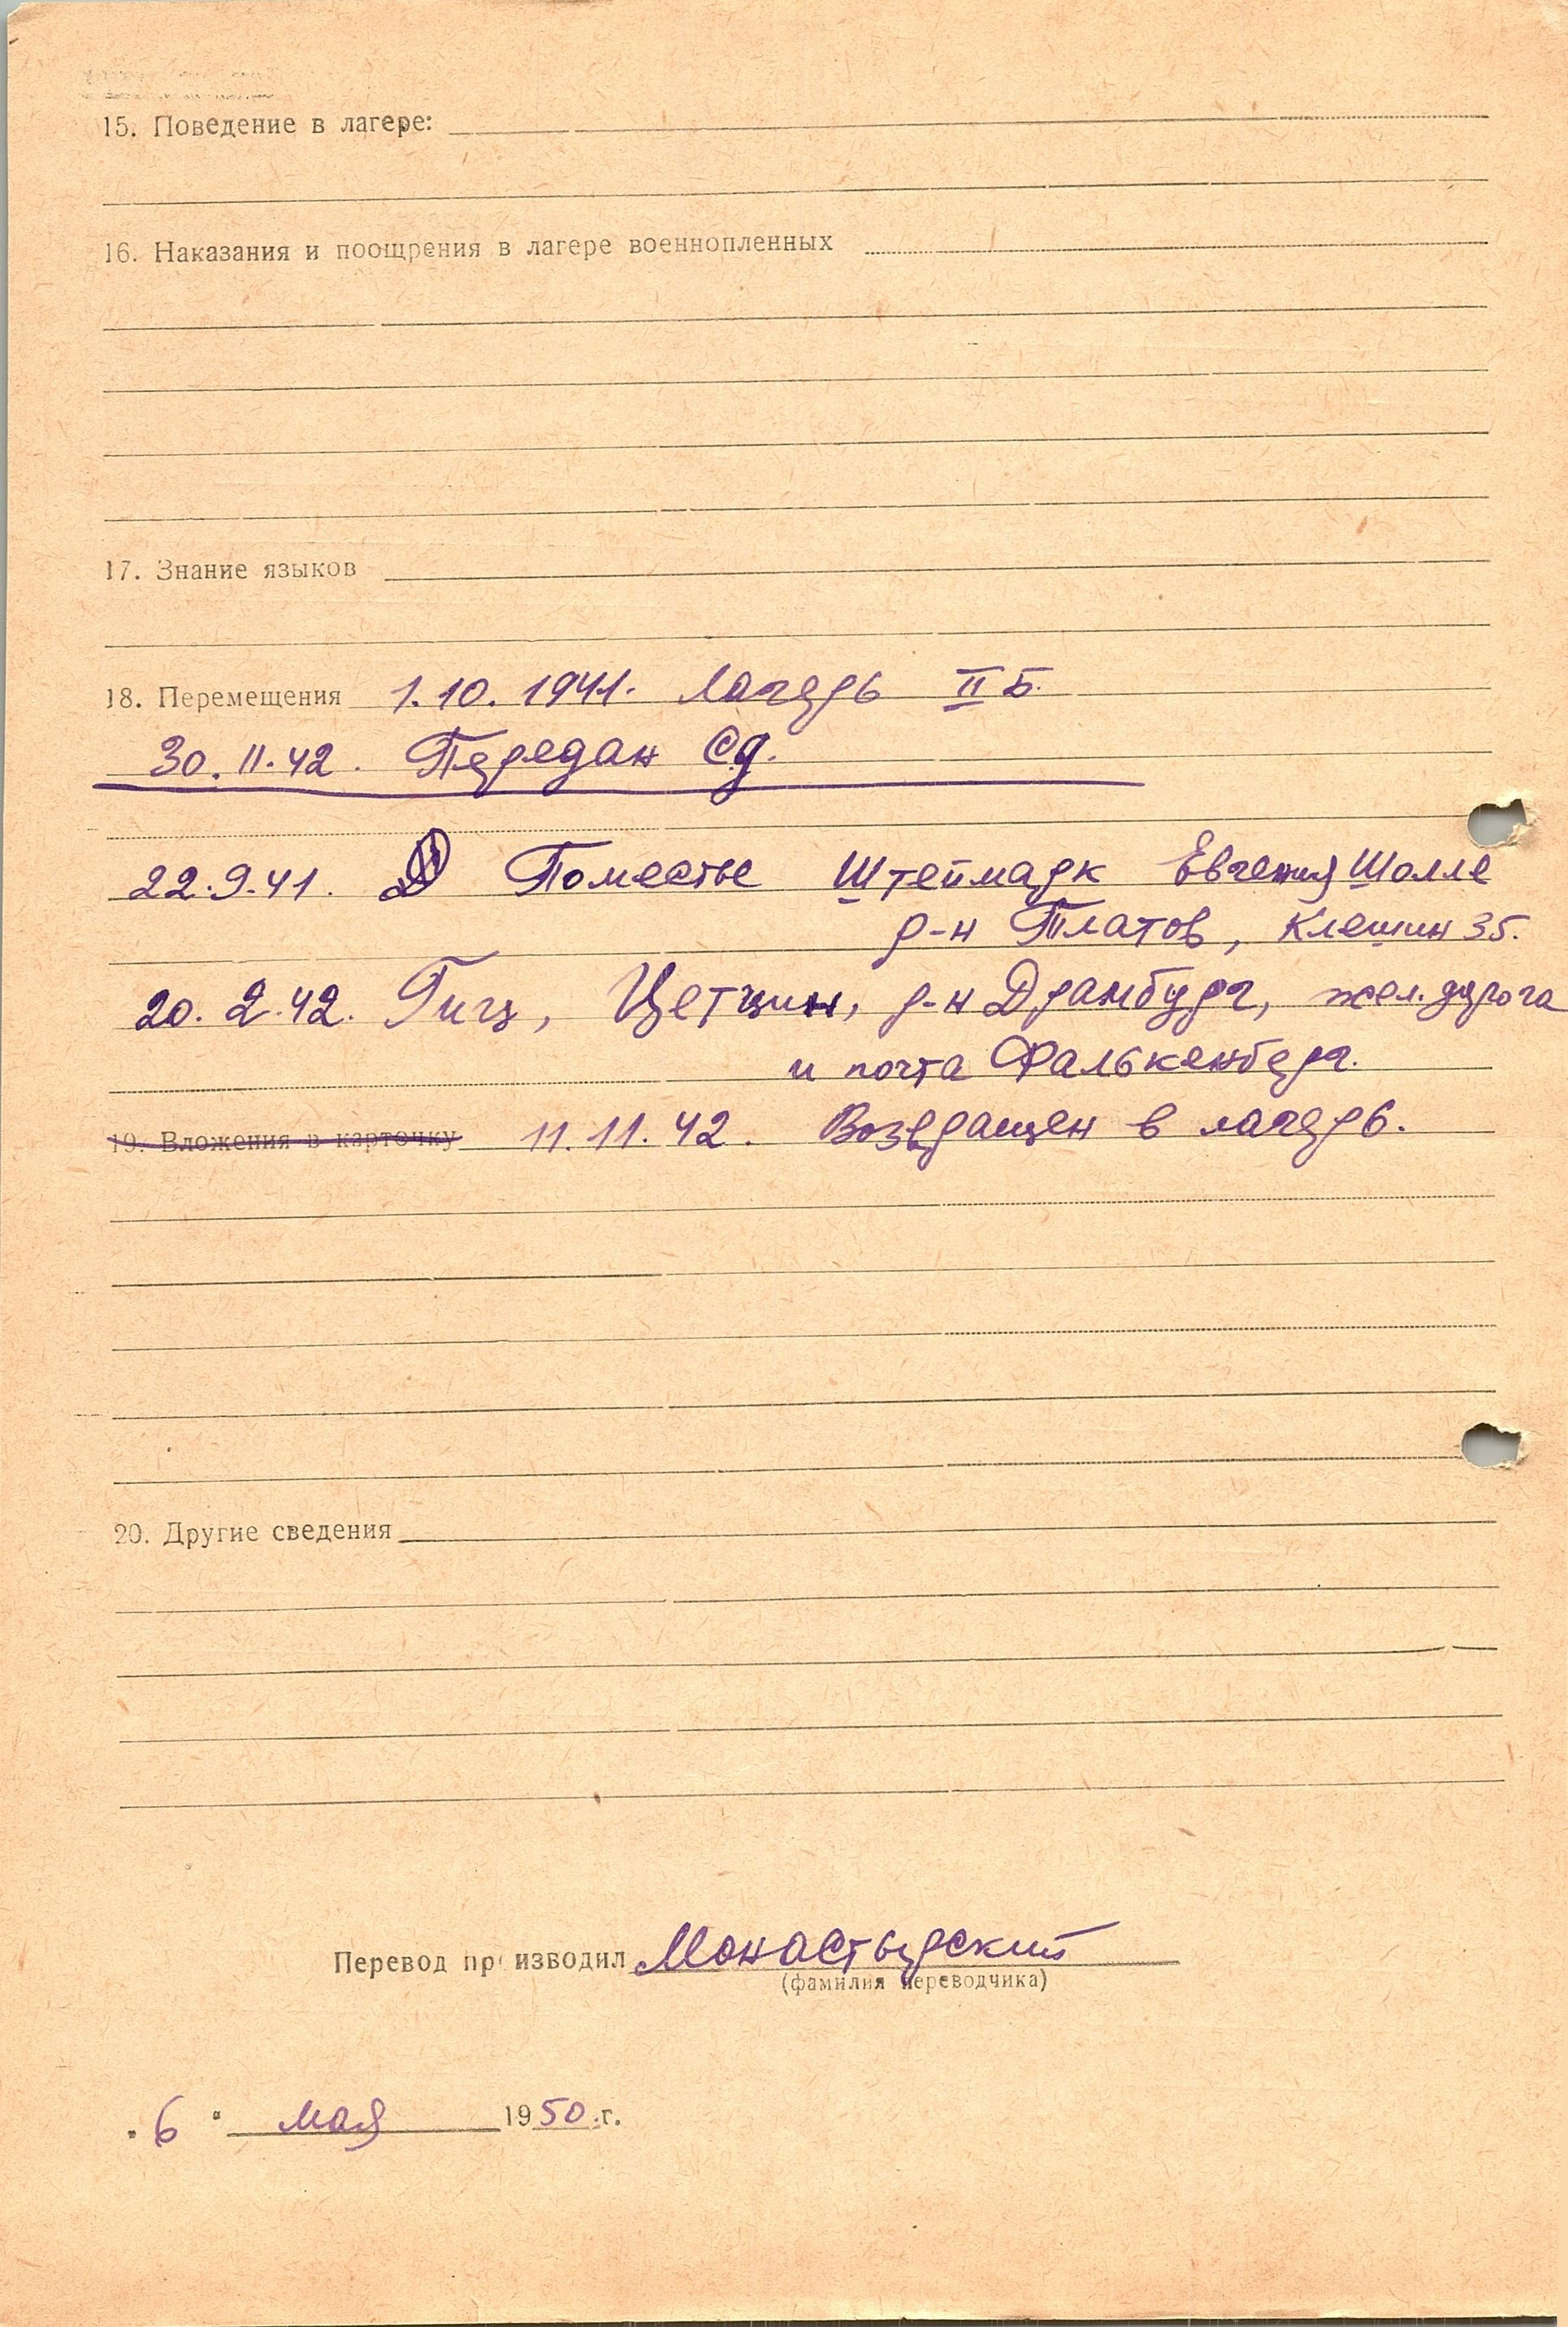 15. Поведение в лагере:
16. Наказания и поощрения в лагере военнопленных
17. Знание языков
18. Перемещения 1.10.1941. Лагерь II Б.
30.11.42. Передан СД.
22.9.41. Поместье Штеймарк Евгения Шолле
р-н Платов, Клешин 35.
20.2.42. Гигц, Цетцин, р-н Драмбург, жел. дорога
и почта Фалькенберг.
19. Вложения в карточку 11.11.42. Возвращен в лагерь.
20. Другие сведения
Перевод производил Монастырский
(фамилия переводчика)
"6" мая 1950 г.